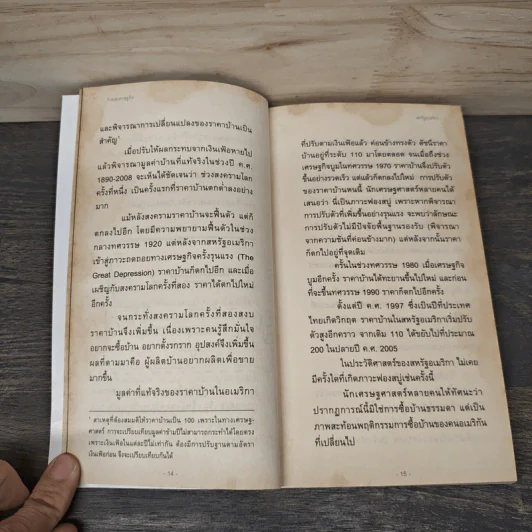 และพิจารณาการเปลี่ยนแปลงของราคาบ้านเป็น
สำคัญ*
เมื่อปรับให้ผลกระทบจากเงินเฟ้อหายไป
แล้วพิจารณามูลค่าบ้านที่แท้จริงในช่วงปี ค.ศ.
1890-2008 จะเห็นได้ชัดเจนว่า ช่วงสงครามโลก
ครั้งที่หนึ่ง เป็นครั้งแรกที่ราคาบ้านตกต่ำลงอย่าง
มาก
แม้หลังสงครามราคาบ้านจะฟื้นตัว แต่ก็
ตกลงไปอีก โดยมีความพยายามฟื้นตัวในช่วง
กลางทศวรรษ 1920 แต่หลังจากสหรัฐอเมริกา
เข้าสู่ภาวะถดถอยทางเศรษฐกิจครั้งรุนแรง (The
Great Depression) ราคาบ้านก็ตกไปอีก และเมื่อ
เผชิญกับสงครามโลกครั้งที่สอง ราคาได้ตกไปใหม่
อีกครั้ง
จนกระทั่งสงครามโลกครั้งที่สองสงบ
ราคาบ้านจึงเพิ่มขึ้น เนื่องเพราะคนรู้สึกมั่นใจ
อยากจะซื้อบ้าน อยากตั้งรกราก อุปสงค์จึงเพิ่มขึ้น
ผลที่ตามมาคือ ผู้ผลิตบ้านอยากผลิตเพื่อขาย
มากขึ้น
มูลค่าที่แท้จริงของราคาบ้านในอเมริกา
* สาเหตุที่ต้องสมมติให้ราคาบ้านเป็น 100 เพราะในทางเศรษฐ-
ศาสตร์ การจะเปรียบเทียบมูลค่าข้ามปีไม่สามารถกระทำได้โดยตรง
เพราะเงินเฟ้อในแต่ละปีไม่เท่ากัน ต้องมีการปรับฐานตามอัตรา
เงินเฟ้อก่อน จึงจะเปรียบเทียบกันได้
- 14 -
ที่ปรับตามเงินเฟ้อแล้ว ค่อนข้างทรงตัว ดัชนีราคา
บ้านอยู่ที่ระดับ 110 มาโดยตลอด จนเมื่อถึงช่วง
เศรษฐกิจบูมในทศวรรษ 1970 ราคาบ้านจึงปรับตัว
ขึ้นอย่างรวดเร็ว แต่แล้วก็ตกลงไปใหม่ การปรับตัว
ของราคาบ้านหนนี้ นักเศรษฐศาสตร์หลายคนได้
เสนอว่า นี่เป็นภาวะฟองสบู่ เพราะหากพิจารณา
การปรับตัวที่เพิ่มขึ้นอย่างรุนแรง จะพบว่าลักษณะ
การปรับตัวไม่มีปัจจัยพื้นฐานรองรับ (พิจารณา
จากความชันที่ค่อนข้างมาก) แต่หลังจากนั้นราคา
ก็ตกไปอยู่ที่จุดเดิม
ครั้นในช่วงทศวรรษ 1980 เมื่อเศรษฐกิจ
บูมอีกครั้ง ราคาบ้านได้ทะยานขึ้นไปใหม่ และก่อน
ที่จะขึ้นทศวรรษ 1990 ราคาก็ตกไปอีกครั้ง
ตั้งแต่ปี ค.ศ. 1997 ซึ่งเป็นปีที่ประเทศ
ไทยเกิดวิกฤต ราคาบ้านในสหรัฐอเมริกาเริ่มปรับ
ตัวสูงอีกคราว จากเดิม 110 ได้ขยับไปที่ประมาณ
200 ในปลายปี ค.ศ. 2005
ในประวัติศาสตร์ของสหรัฐอเมริกา ไม่เคย
มีครั้งใดที่เกิดภาวะฟองสบู่เช่นครั้งนี้
นักเศรษฐศาสตร์หลายคนให้ทัศนะว่า
ปรากฏการณ์นี้มิใช่การซื้อบ้านธรรมดา แต่เป็น
ภาพสะท้อนพฤติกรรมการซื้อบ้านของคนอเมริกัน
ที่เปลี่ยนไป
- 15 -